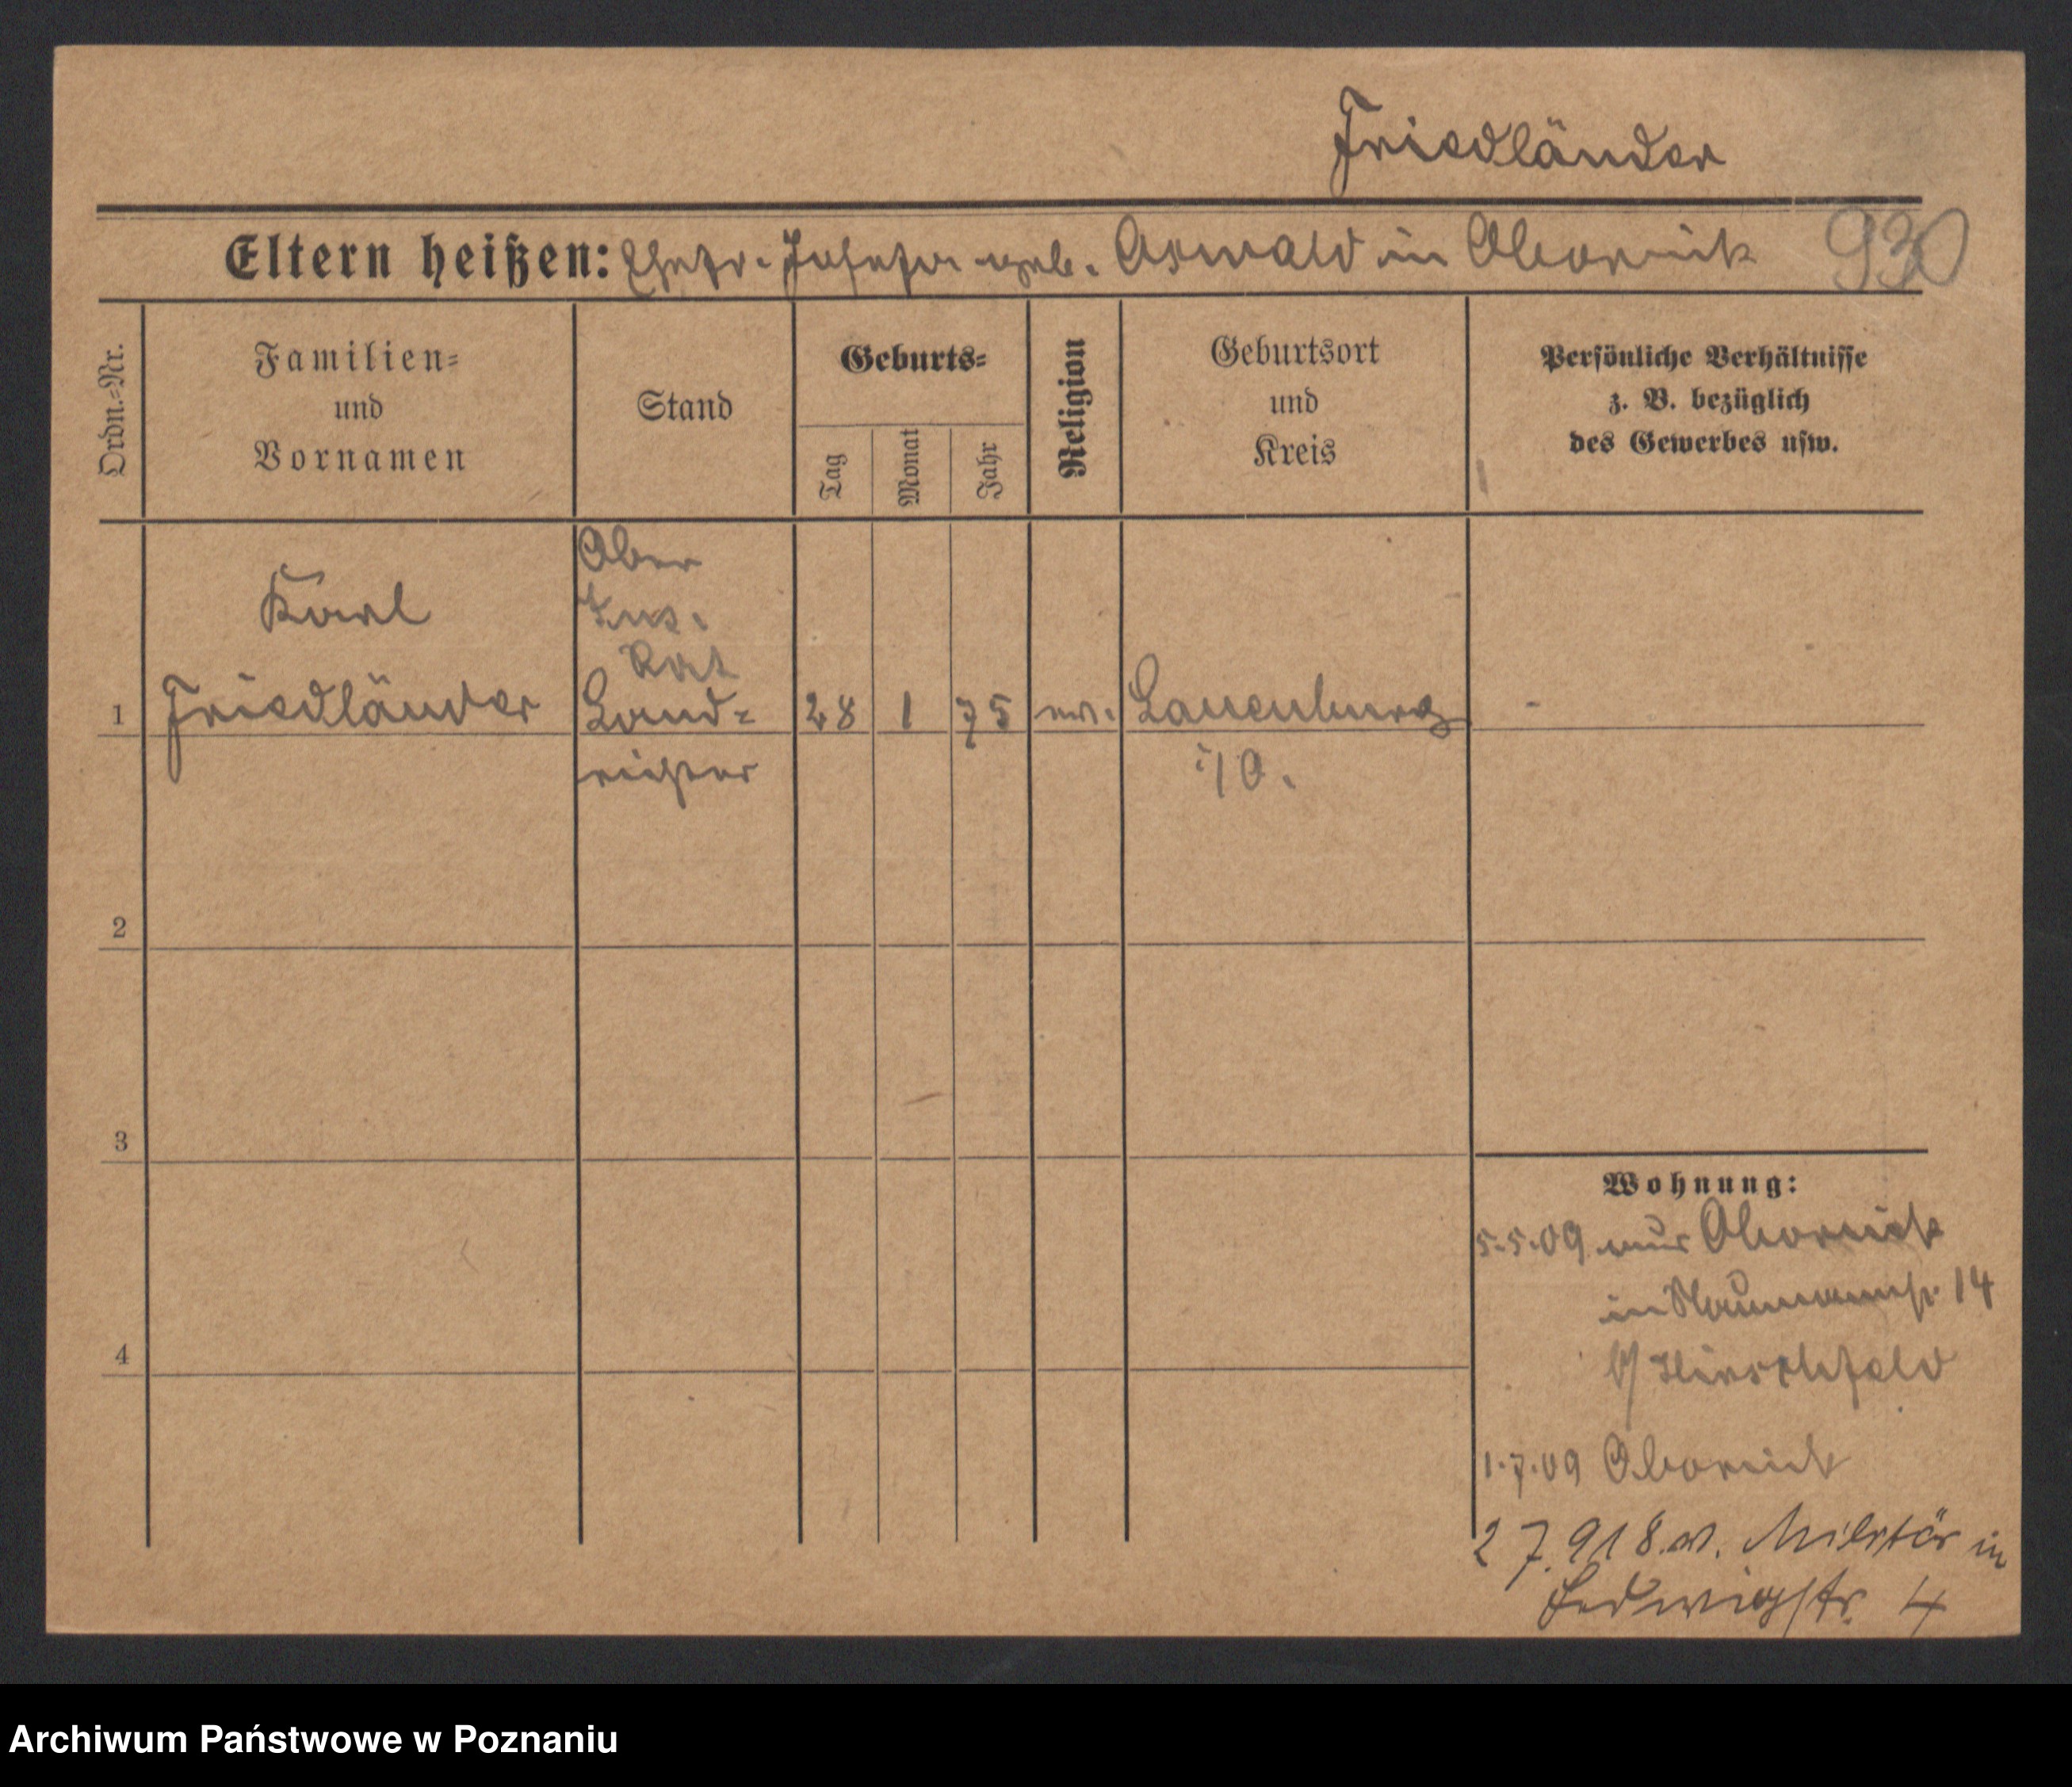 Friedländer
Eltern heißen: Ehefr. Josefa geb. Oswald in Obornik 930
Ordn.-Nr.
Familien-
und
Vornamen
Stand
Geburts-
Tag
Monat
Jahr
Religion
Geburtsort
und
Kreis
Persönliche Verhältnisse
z. B. bezüglich
des Gewerbes usw.
Ober
Karl
Rat
1 Friedländer Land- 28 1 75 ev. Lauenburg -
richter
2
3
4
Wohnung:
5.5.09 aus Obornick
in Naumannstr. 14
b/ Hirschfeld
1.7.09 Obornick
27.918. v. Militär in
Hedwigstr. 4
Archiwum Państwowe w Poznaniu